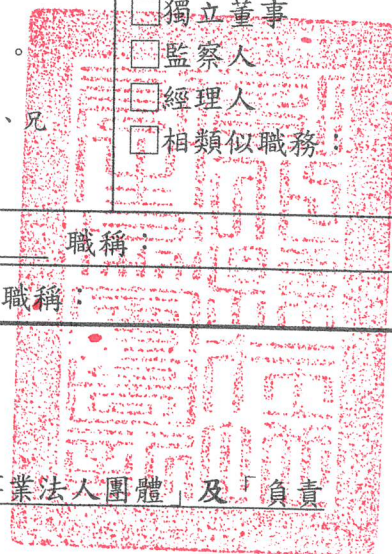 □獨立董事
。
□監察人
□經理人
、兄
□相類似職務：
職稱：
職稱：
業法人團體」及「負責